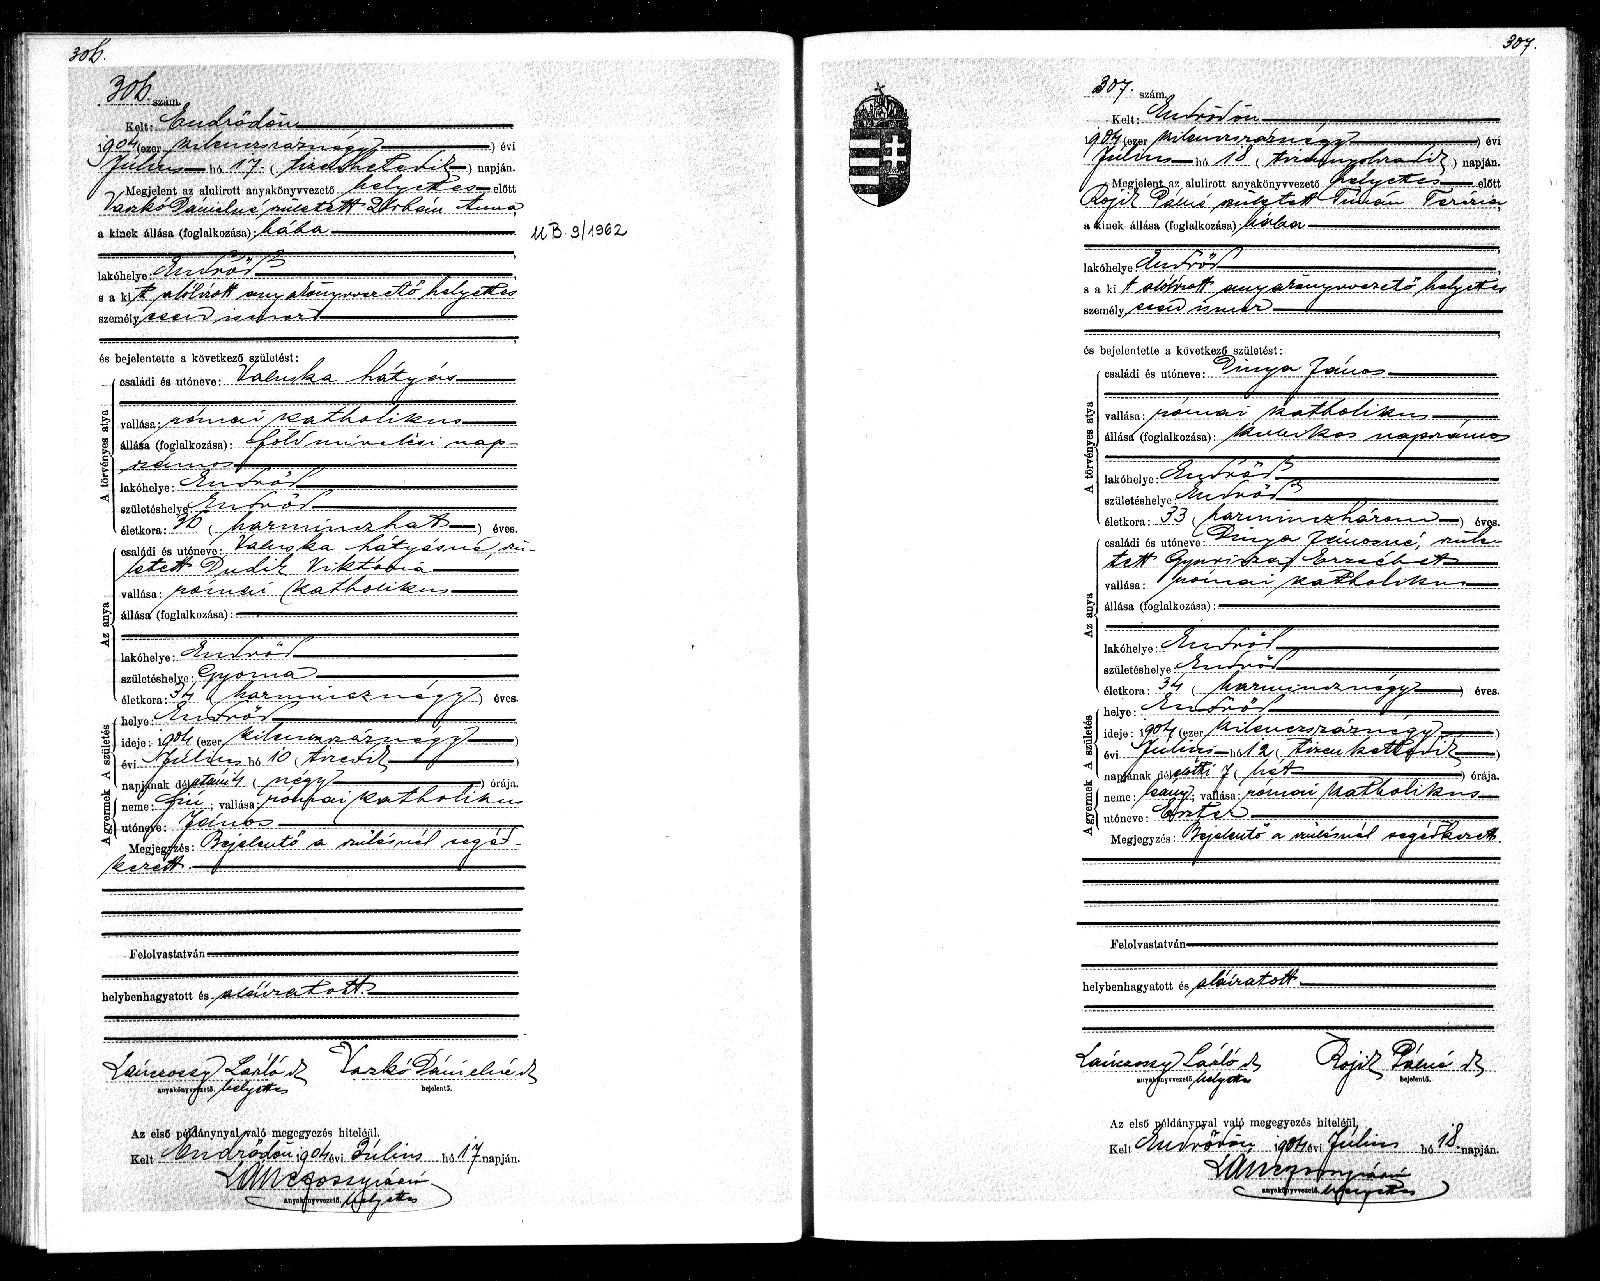 306.
306. szám.
Kelt: Endrődön
1904 (ezer kilenczszáznégy) évi
Július hó 17. (tizenhetedik) napján.
Megjelent az alulirott anyakönyvvezető helyettes előtt
Vaskó Dánielné született Urbán Anna
a kinek állása (foglalkozása): bába
U B. 9/1962
lakóhelye: Endrőd
s a kit alólirott anyakönyvvezető helyettes
személyesen ismer
és bejelentette a következő születést:
A törvényes atya
családi és utóneve: Valuska Mátyás
vallása: római katholikus
állása (foglalkozása): földmivelési nap-
számos
lakóhelye: Endrőd
születéshelye Endrőd
életkora: 36 (harminczhat) éves.
Az anya
családi és utóneve: Valuska Mátyásné, szü-
letett Dudik Viktória
vallása: római katholikus
állása (foglalkozása):
lakóhelye: Endrőd
születéshelye: Gyoma
életkora: 34 (harmincznégy) éves.
A gyermek A születés
helye: Endrőd
ideje: 1904 (ezer kilenczszáznégy)
évi Július hó 10 (tizedik)
napjának délutáni 4 (négy) órája.
neme: fiú; vallása: római katholikus
utóneve: János
Megjegyzés: Bejelentő a szülésnél segéd-
kezett.
Felolvastatván
helybenhagyatott és aláiratott.
Lánczossy László sk Vaskó Dánielné sk
anyakönyvvezető. helyettes bejelentő.
Az első példánynyal való megegyezés hiteléül.
Kelt Endrődön 1904 évi Július hó 17 napján.
anyakönyvvezető. helyettes
307.
307. szám.
Kelt: Endrődön
1904 (ezer kilenczszáznégy) évi
Július hó 18 (tizennyolczadik) napján.
Megjelent az alulirott anyakönyvvezető helyettes előtt
Rojik Pálné született Timán Terézia
a kinek állása (foglalkozása): bába
lakóhelye: Endrőd
s a kit alólirott anyakönyvvezető helyettes
személyesen ismer
és bejelentette a következő születést:
A törvényes atya
családi és utóneve: Dinya János
vallása: római katholikus
állása (foglalkozása): kubikos napszámos
lakóhelye: Endrőd
születéshelye Endrőd
életkora: 33 (harminczhárom) éves.
Az anya
családi és utóneve: Dinya Jánosné, szüle-
tett Gyuricza Erzsébet
vallása: római katholikus
állása (foglalkozása):
lakóhelye: Endrőd
születéshelye Endrőd
életkora: 34 (harmincznégy) éves.
A gyermek A születés
helye: Endrőd
ideje: 1904 (ezer kilenczszáznégy)
évi Július hó 12 (tizenkettedik)
napjának délelőtti 7 (hét) órája.
neme: leány; vallása: római katholikus
utóneve: Eszter
Megjegyzés: Bejelentő a szülésnél segédkezett.
Felolvastatván
helybenhagyatott és aláiratott.
Lánczossy László sk Rojik Pálné sk
anyakönyvvezető. helyettes bejelentő.
Az első példánynyal való megegyezés hiteléül.
Kelt Endrődön 1904 évi Július hó 18. napján.
anyakönyvvezető. helyettes